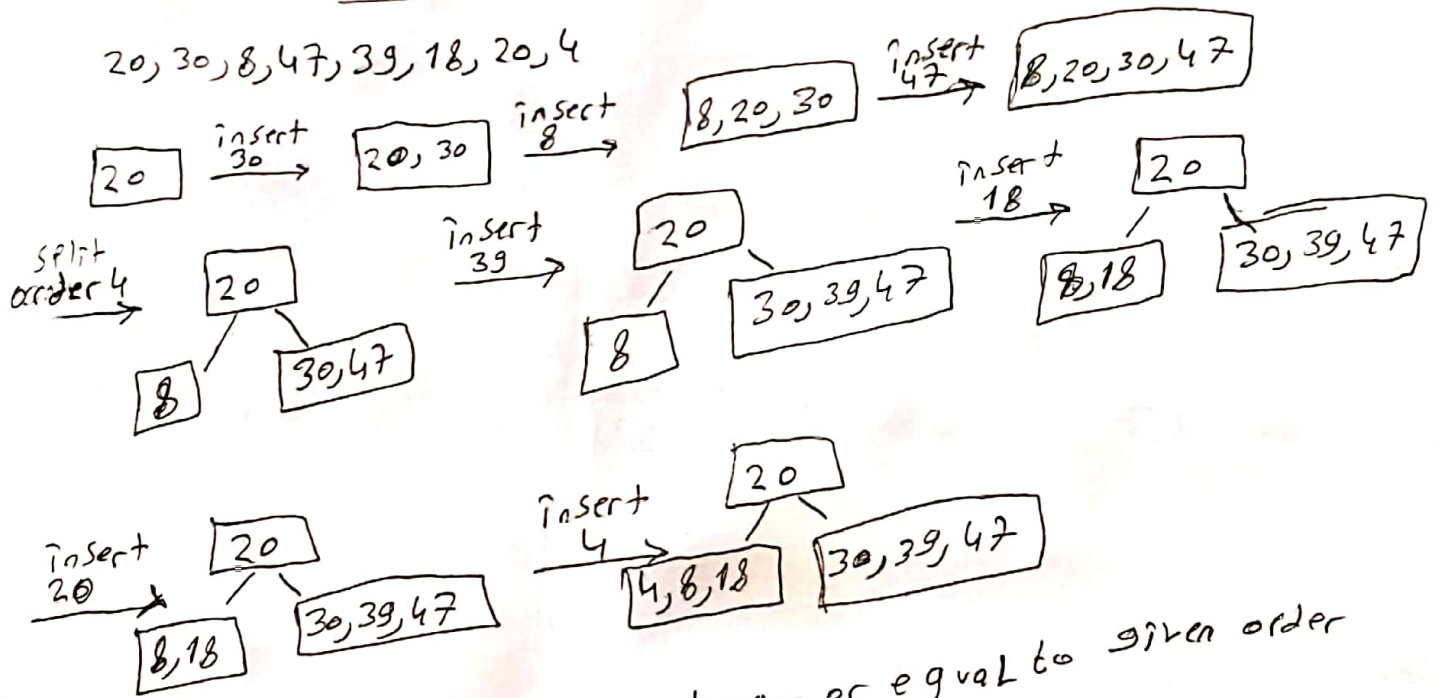 20, 30, 8, 47, 39, 18, 20, 4
20
insert
30
20, 30
insert
8
8, 20, 30
insert
47
8, 20, 30, 47
split
order 4
20
8
30, 47
insert
39
20
8
30, 39, 47
insert
18
20
8, 18
30, 39, 47
insert
20
20
8, 18
30, 39, 47
insert
4
20
4, 8, 18
30, 39, 47
or equal to given order